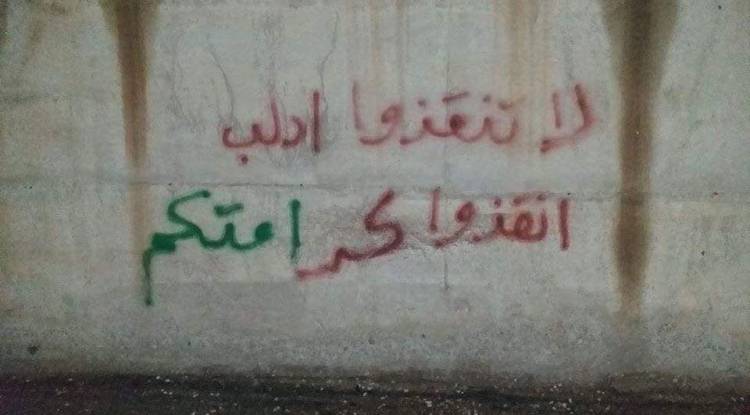 لا تنقذوا ادلب
انقذوا كرامتكم